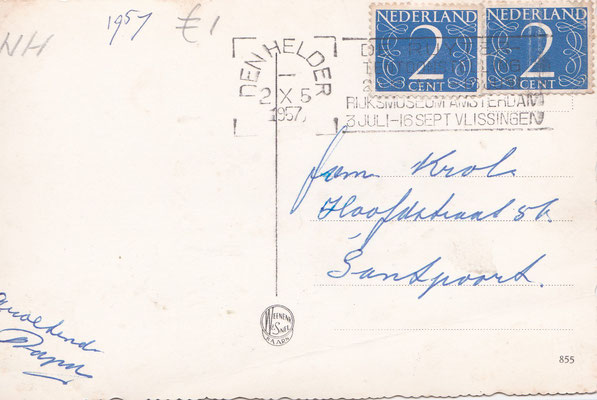 NH
1957 €1
NEDERLAND
2
CENT
NEDERLAND
2
CENT
DEN HELDER
2 X 5
1957
RIJKSMUSEUM AMSTERDAM
3 JULI-16 SEPT VLISSINGEN
fam Krol
Hoofdstraat
Santpoort.
855